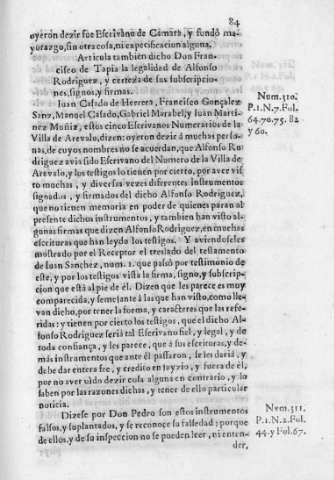 84
oyeron dezir fue Escrivano de Camara, y fundò ma-
yorazgo, sin otra cosa, ni especificacion alguna.
Articula tambien dicho Don Fran-
cisco de Tapia la legalidad de Alfonso
Rodriguez, y certeza de sus subscripcio-
nes, signos, y firmas.
Iuan Casado de Herrero, Francisco Gonçalez
Sanz, Manuel Casado, Gabriel Marabel, y Iuan Marti-
nez Muñiz, estos cinco Escrivanos Numerarios de la
Villa de Arevalo, dizen: oyeron dezir à muchas perso-
nas, de cuyos nombres no se acuerdan, que Alfonso Ro-
driguez avia sido Escrivano del Numero de la Villa de
Arevalo, y los testigos lo tienen por cierto, por aver vis-
to muchas, y diversas vezes diferentes instrumentos
signados, y firmados del dicho Alfonso Rodriguez,
que no tienen memoria en poder de quienes paran al
presente dichos instrumentos, y tambien han visto al-
gunas firmas que dizen Alfonso Rodriguez, en muchas
escrituras que han leydo los testigos. Y aviendoseles
mostrado por el Receptor el treslado del testamento
de Iuan Sanchez, num. 1. que passò por testimonio de
este, y por los testigos vista la firma, signo, y subscrip-
cion que està al pie de èl. Dizen que les parece es muy
comparecida, y semejante à las que han visto, como lle-
van dicho, por tener la forma, y caracteres que las refe-
ridas: y tienen por cierto los testigos, que el dicho Al-
fonso Rodriguez seria tal Escrivano fiel, y legal, y de
toda confiança, y les parece, que à sus escrituras, y de-
màs instrumentos que ante èl passaron, se les daria, y
debe dar entera fee, y credito en juyzio, y fuera de èl,
por no aver oìdo dezir cosa alguna en contrario, y lo
saben por las razones dichas, y tener de ello particular
noticia.
Dizese por Don Pedro son estos instrumentos
falsos, y suplantados, y se reconoce su falsedad: porque
de ellos, y de su inspeccion no se pueden leer, ni enten-
der,
Num. 310.
P. 1. N. 7. Fol.
64. 70. 75. 82
y 60.
Num. 311.
P. 1. N. 2. Fol.
44. y Fol. 67.